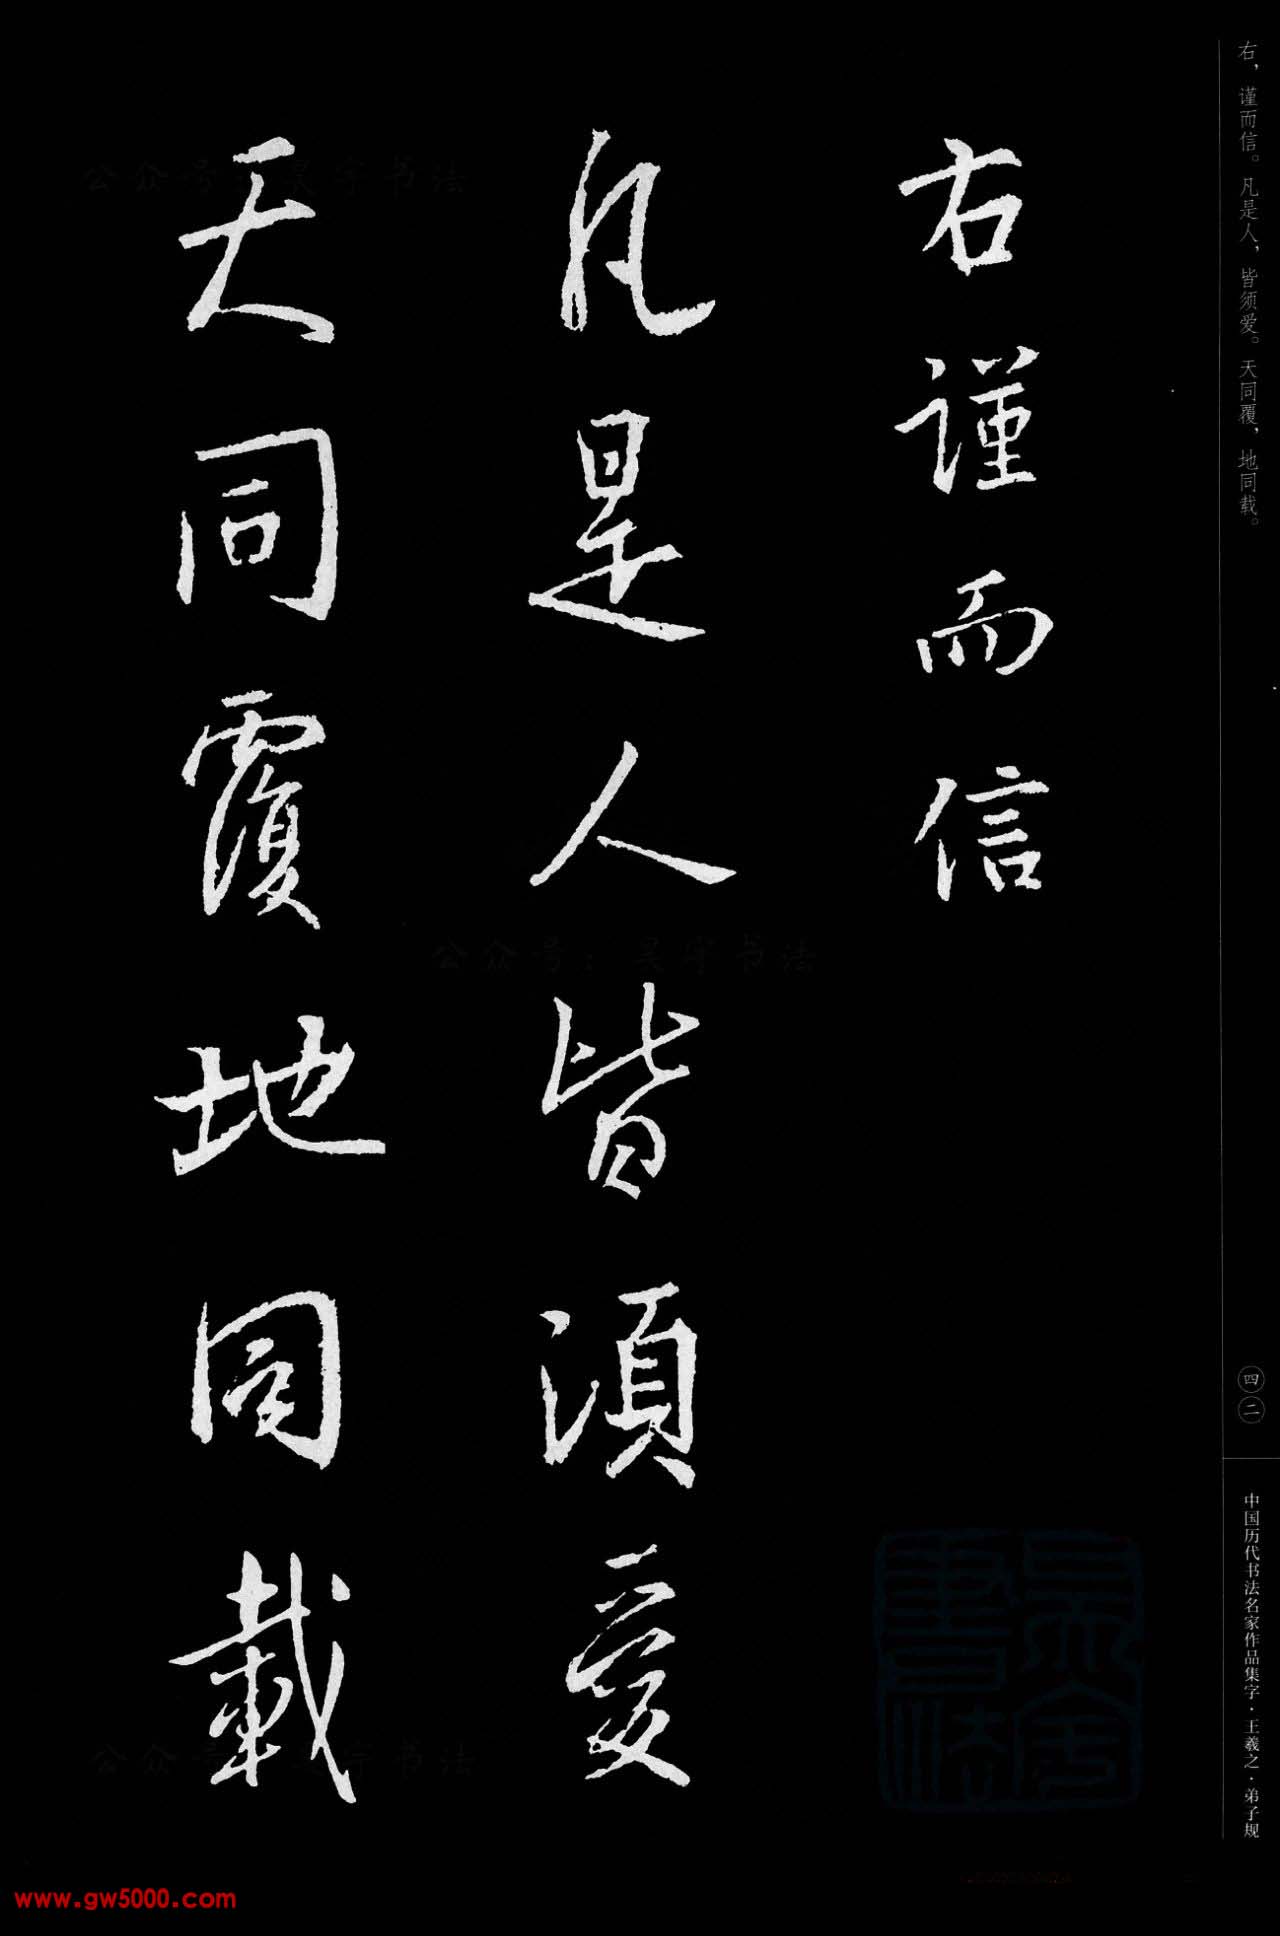 右謹而信
凡是人皆須愛
天同覆地同載
右，谨而信。凡是人，皆须爱。天同覆，地同载。
四二
中国历代书法名家作品集字·王羲之·弟子规
公众号：昊宇书法
公众号：昊宇书法
公众号：昊宇书法
www.gw5000.com